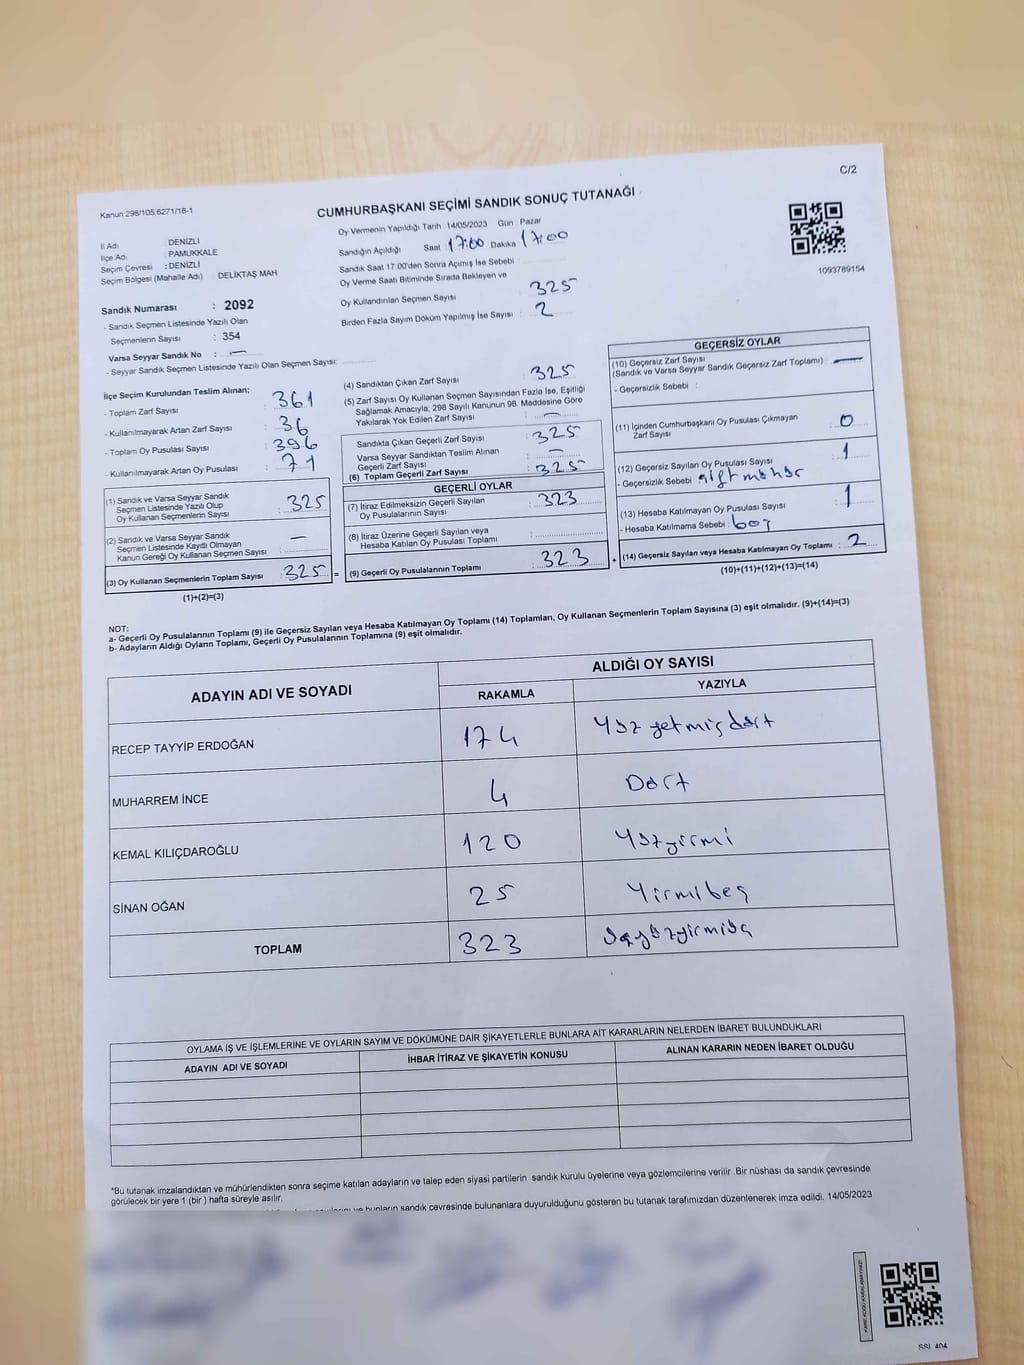 C/2
Kanun 298/105;6271/18-1
CUMHURBAŞKANI SEÇİMİ SANDIK SONUÇ TUTANAĞI
İl Adı : DENİZLİ
İlçe Adı : PAMUKKALE
Seçim Çevresi : DENİZLİ
Seçim Bölgesi (Mahalle Adı) : DELİKTAŞ MAH
Oy Vermenin Yapıldığı Tarih : 14/05/2023 Gün : Pazar
Sandığın Açıldığı Saat 17:00 Dakika 17:00
Sandık Saat 17:00'den Sonra Açımış İse Sebebi :
Oy Verme Saati Bitiminde Sırada Bekleyen ve
Oy Kullandırılan Seçmen Sayısı 325
Birden Fazla Sayım Döküm Yapılmış İse Sayısı : 2
1093789154
Sandık Numarası : 2092
- Sandık Seçmen Listesinde Yazılı Olan
Seçmenlerin Sayısı : 354
Varsa Seyyar Sandık No : —
- Seyyar Sandık Seçmen Listesinde Yazılı Olan Seçmen Sayısı:
İlçe Seçim Kurulundan Teslim Alınan;
- Toplam Zarf Sayısı : 361
- Kullanılmayarak Artan Zarf Sayısı : 36
- Toplam Oy Pusulası Sayısı : 396
- Kullanılmayarak Artan Oy Pusulası : 71
(1) Sandık ve Varsa Seyyar Sandık
Seçmen Listesinde Yazılı Olup
Oy Kullanan Seçmenlerin Sayısı : 325
(2) Sandık ve Varsa Seyyar Sandık
Seçmen Listesinde Kayıtlı Olmayan
Kanun Gereği Oy Kullanan Seçmen Sayısı : —
(3) Oy Kullanan Seçmenlerin Toplam Sayısı : 325 =
(1)+(2)=(3)
(4) Sandıktan Çıkan Zarf Sayısı : 325
(5) Zarf Sayısı Oy Kullanan Seçmen Sayısından Fazla İse, Eşitliği
Sağlamak Amacıyla; 298 Sayılı Kanunun 98. Maddesine Göre
Yakılarak Yok Edilen Zarf Sayısı : —
Sandıkta Çıkan Geçerli Zarf Sayısı : 325
Varsa Seyyar Sandıktan Teslim Alınan
Geçerli Zarf Sayısı : —
(6) Toplam Geçerli Zarf Sayısı : 325
GEÇERLİ OYLAR
(7) İtiraz Edilmeksizin Geçerli Sayılan
Oy Pusulalarının Sayısı : 323
(8) İtiraz Üzerine Geçerli Sayılan veya
Hesaba Katılan Oy Pusulası Toplamı :
(9) Geçerli Oy Pusulalarının Toplamı : 323 +
GEÇERSİZ OYLAR
(10) Geçersiz Zarf Sayısı
(Sandık ve Varsa Seyyar Sandık Geçersiz Zarf Toplamı) : —
- Geçersizlik Sebebi :
(11) İçinden Cumhurbaşkanı Oy Pusulası Çıkmayan
Zarf Sayısı : 0
(12) Geçersiz Sayılan Oy Pusulası Sayısı : 1
- Geçersizlik Sebebi : çift mühür
(13) Hesaba Katılmayan Oy Pusulası Sayısı : 1
- Hesaba Katılmama Sebebi : boş
(14) Geçersiz Sayılan veya Hesaba Katılmayan Oy Toplamı : 2
(10)+(11)+(12)+(13)=(14)
NOT:
a- Geçerli Oy Pusulalarının Toplamı (9) ile Geçersiz Sayılan veya Hesaba Katılmayan Oy Toplamı (14) Toplamları, Oy Kullanan Seçmenlerin Toplam Sayısına (3) eşit olmalıdır. (9)+(14)=(3)
b- Adayların Aldığı Oyların Toplamı, Geçerli Oy Pusulalarının Toplamına (9) eşit olmalıdır.
ADAYIN ADI VE SOYADI
ALDIĞI OY SAYISI
RAKAMLA YAZIYLA
RECEP TAYYİP ERDOĞAN 174 Yüz yetmiş dört
MUHARREM İNCE 4 Dört
KEMAL KILIÇDAROĞLU 120 Yüzyirmi
SİNAN OĞAN 25 Yirmibeş
TOPLAM 323 üçyüzyirmiüç
OYLAMA İŞ VE İŞLEMLERİNE VE OYLARIN SAYIM VE DÖKÜMÜNE DAİR ŞİKAYETLERLE BUNLARA AİT KARARLARIN NELERDEN İBARET BULUNDUKLARI
ADAYIN ADI VE SOYADI İHBAR İTİRAZ VE ŞİKAYETİN KONUSU ALINAN KARARIN NEDEN İBARET OLDUĞU
*Bu tutanak imzalandıktan ve mühürlendikten sonra seçime katılan adayların ve talep eden siyasi partilerin sandık kurulu üyelerine veya gözlemcilerine verilir. Bir nüshası da sandık çevresinde
görülecek bir yere 1 (bir) hafta süreyle asılır.
ve bunların sandık çevresinde bulunanlara duyurulduğunu gösteren bu tutanak tarafımızdan düzenlenerek imza edildi. 14/05/2023